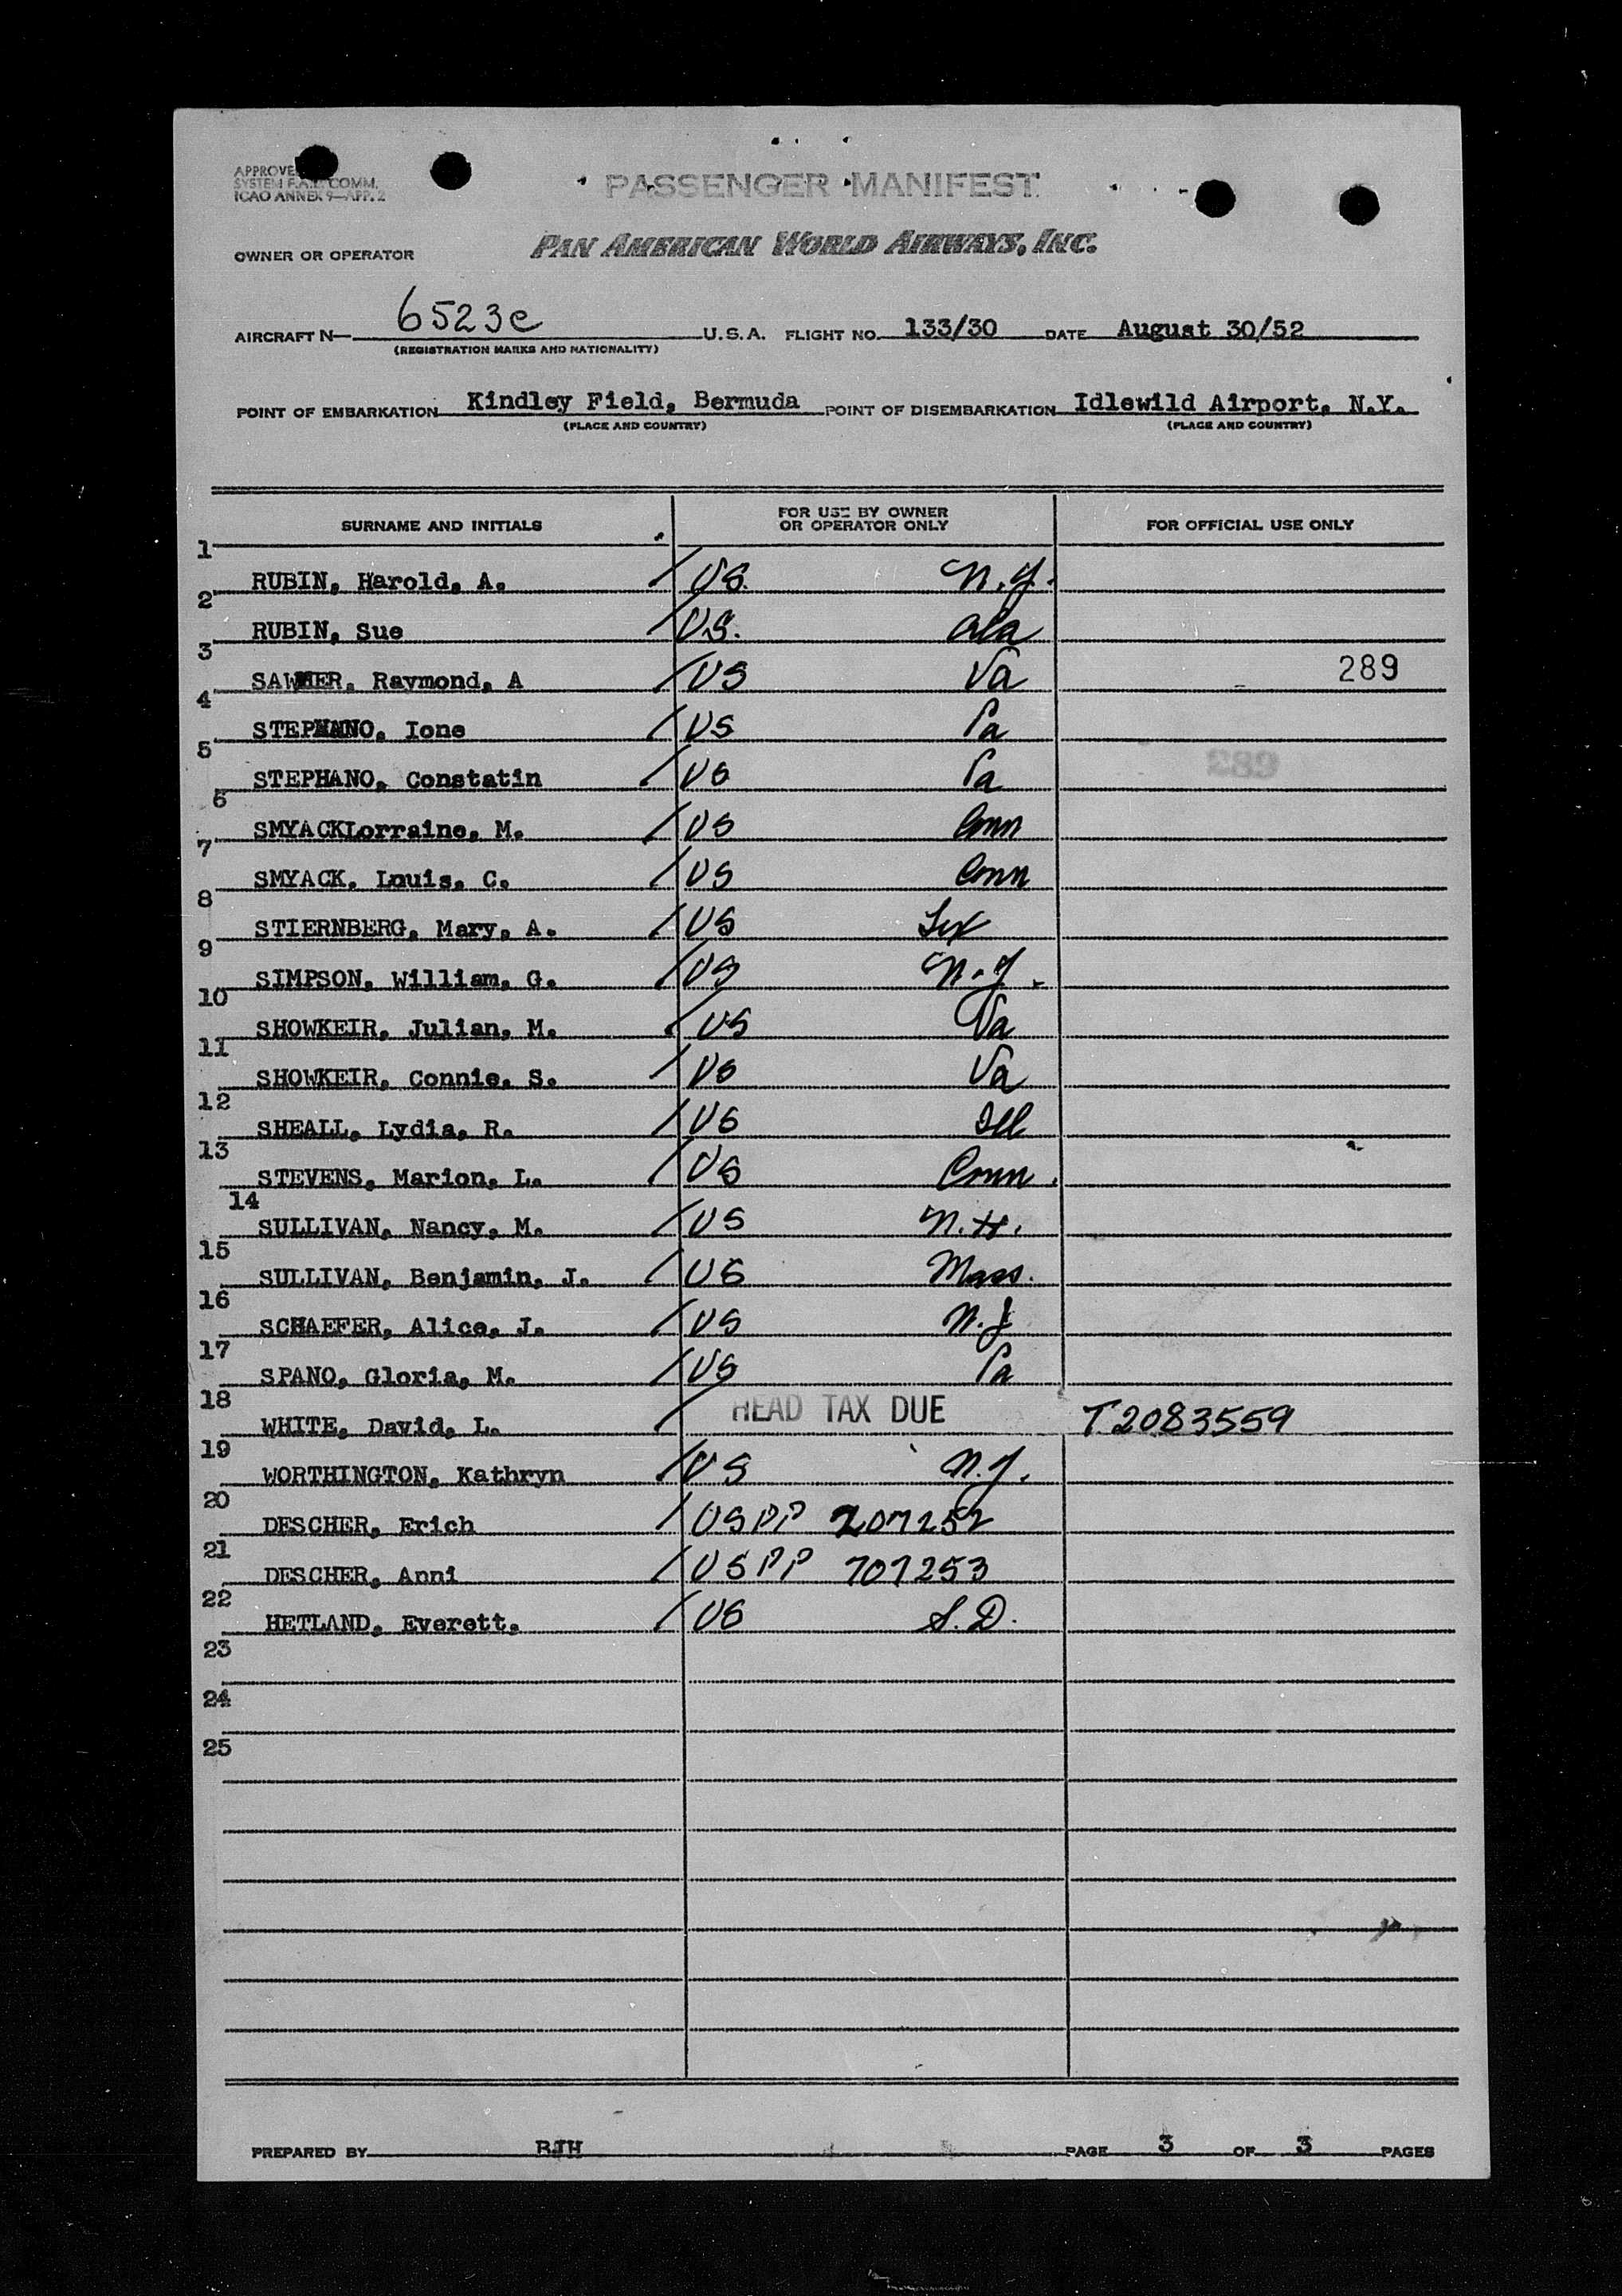 APPROVE
SYSTEM F.A.L. COMM.
ICAO ANNEX 9—APP. 2
PASSENGER MANIFEST
OWNER OR OPERATOR PAN AMERICAN WORLD AIRWAYS, INC.
AIRCRAFT N— 6523c U.S.A. FLIGHT NO. 133/30 DATE August 30/52
(REGISTRATION MARKS AND NATIONALITY)
POINT OF EMBARKATION Kindley Field, Bermuda POINT OF DISEMBARKATION Idlewild Airport, N.Y.
(PLACE AND COUNTRY) (PLACE AND COUNTRY)
SURNAME AND INITIALS FOR USE BY OWNER OR OPERATOR ONLY FOR OFFICIAL USE ONLY
1 RUBIN, Harold, A. / US. N.Y.
2 RUBIN, Sue / U.S. Ala
3 Raymond, A / US Va 289
4 STEPHANO, Ione / US Pa
5 STEPHANO, Constatin / US Pa 289
6 SMYACKLorraine, M. / US Conn
7 SMYACK, Louis, C. / US Conn
8 STIERNBERG, Mary, A. / US Tex
9 SIMPSON, William, G. / US
10 SHOWKEIR, Julian, M. / US Va
11 SHOWKEIR, Connie, S. / US Va
12 SHEALL, Lydia, R. / US Ill
13 STEVENS, Marion, L. / US Conn.
14 SULLIVAN, Nancy, M. / US N.H.
15 SULLIVAN, Benjamin, J. / US Mass.
16 SCHAEFER, Alice, J. / US N.J
17 SPANO, Gloria, M. / US Pa
18 WHITE, David, L. / HEAD TAX DUE T2083559
19 WORTHINGTON, Kathryn / US
20 DESCHER, Erich / USPP 207252
21 DESCHER, Anni / USPP 707253
22 HETLAND, Everett, / US S.D.
23
24
25
PREPARED BY RJH PAGE 3 OF 3 PAGES